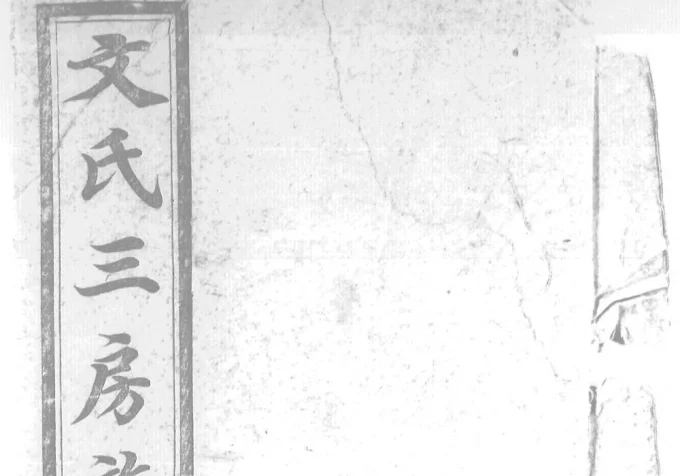 文氏三房